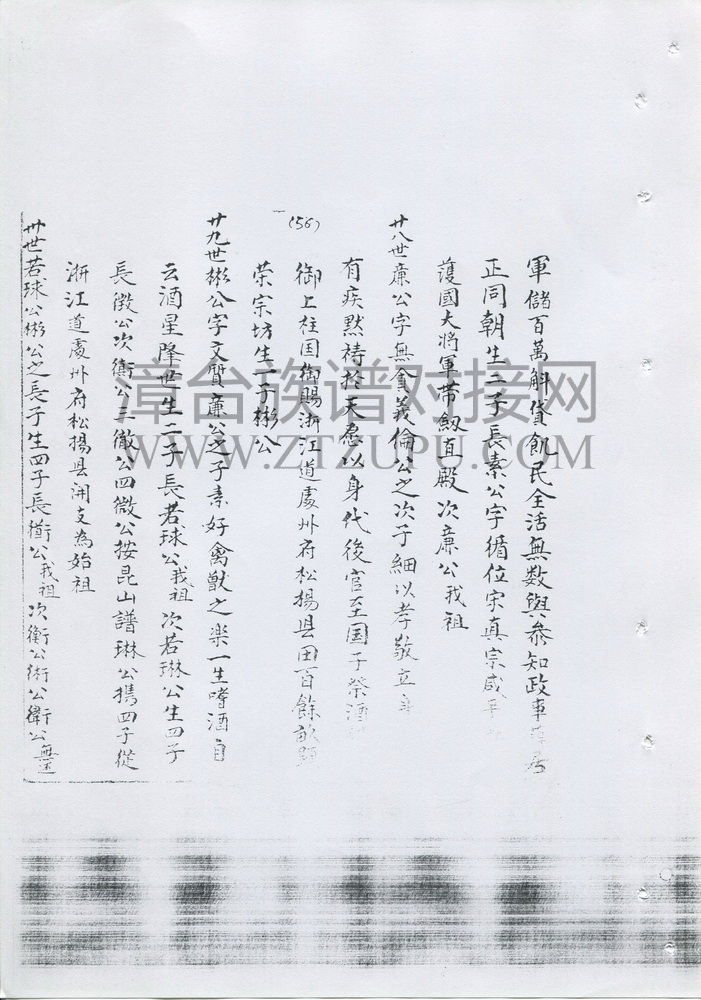 軍儲百萬斛貸飢民全活無数與参知政事
正同朝生二子長素公字循位宋真宗咸平
護國大将軍带劔直殿次廉公我祖
廿八世廉公字無貪義倫公之次子細以孝敬立身
有疾黙祷於天愿以身代後官至国子祭酒
(56)
御上柱国御賜浙江道處州府松揚县田百餘畝
荣宗坊生一子彬公
廿九世彬公字文質廉公之子素好禽獣之楽一生嗜酒自
云酒星降世生二子長若球公我祖次若琳公生四子
長徵公次衛公三徹公四微公按昆山譜琳公携四子從
浙江道處州府松揚县開支為始祖
卅世若球公彬公之長子生四子長衜公我祖次衛公術公衛公無
漳台族谱对接网
WWW.ZTZUPU.COM